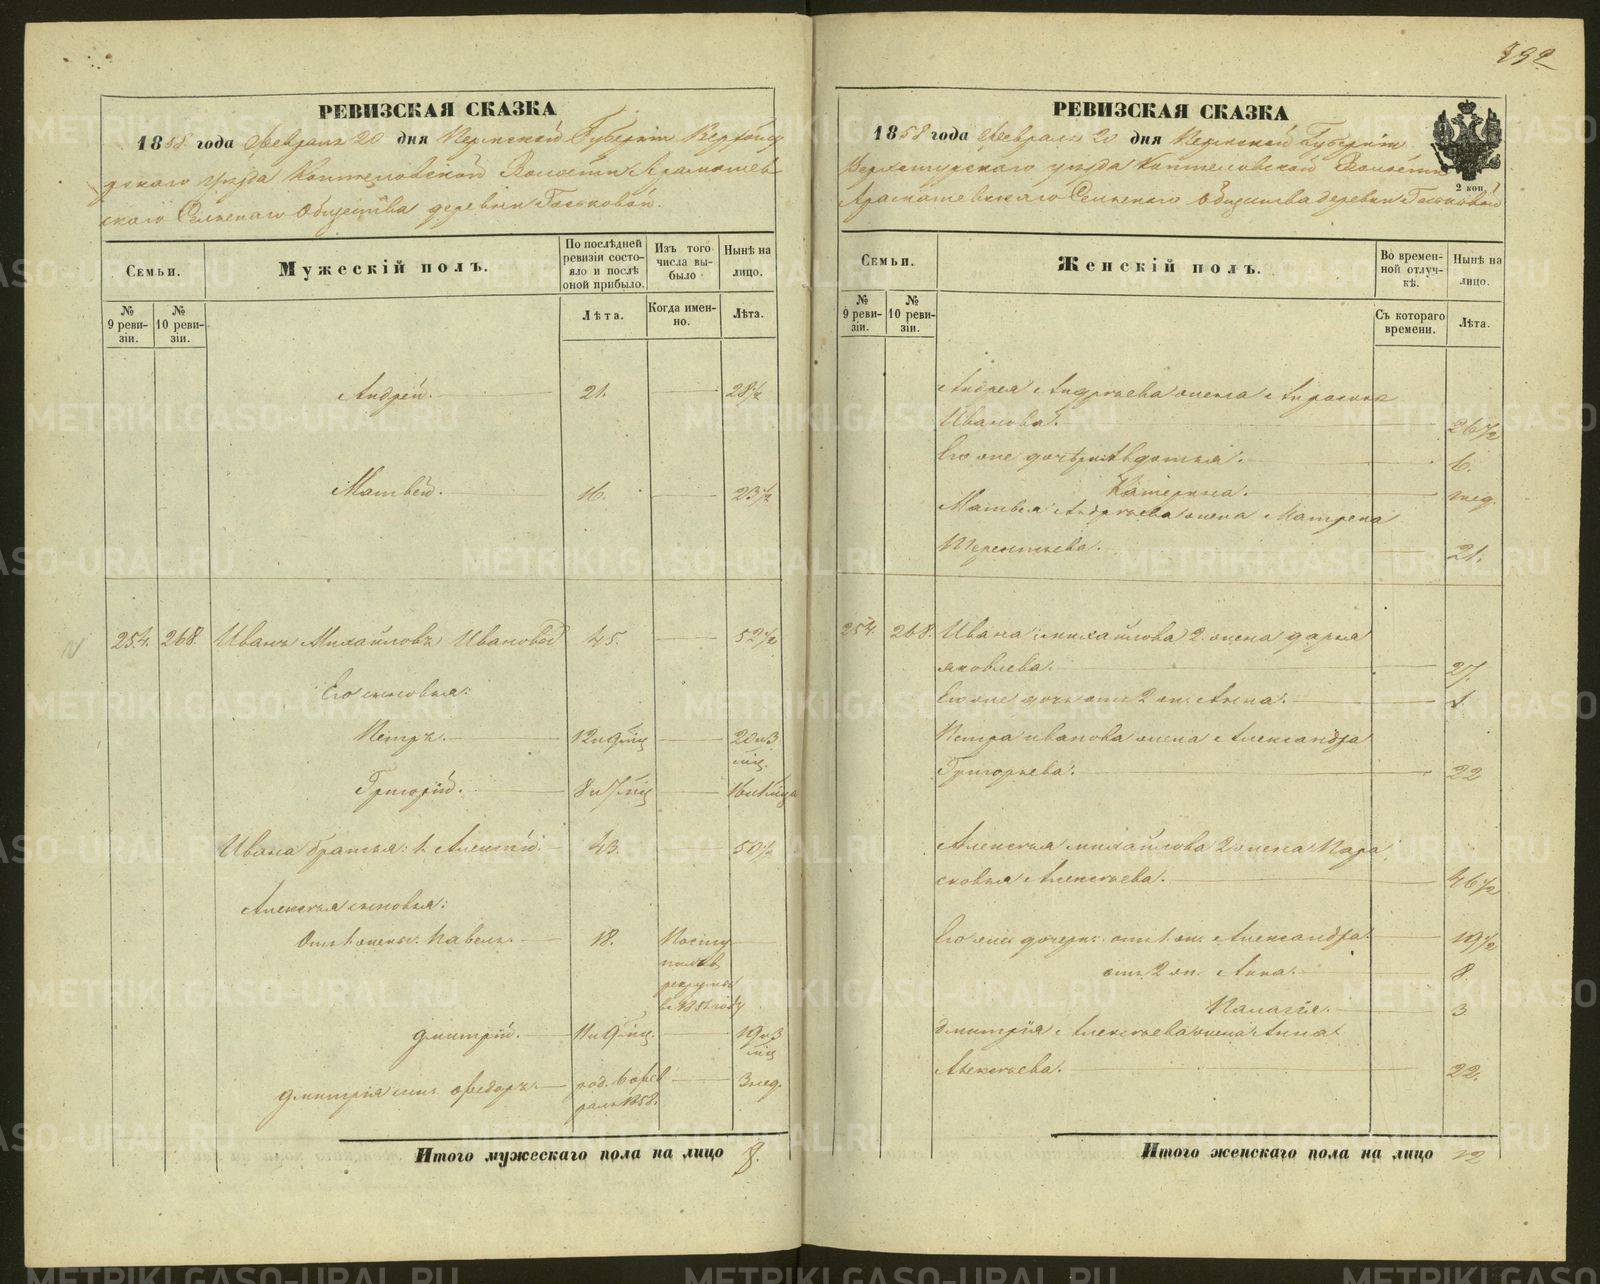 792
РЕВИЗСКАЯ СКАЗКА
1858 года Февраля 20 дня Пермской Губернiи Верхотур
скаго уѣзда Коптеловской Волости Арамашев
скаго Сельскаго Общества деревни Таськовой.
Семьи.
Мужескiй полъ.
По послѣдней ревизiи состояло и послѣ оной прибыло.
Изъ того числа выбыло
Нынѣ на лицо.
№ 9 ревизiи.
№ 10 ревизiи.
Лѣта.
Когда именно.
Лѣта.
Андрей. 21. 28½
Матвей. 16. 23½
254. 268. Иванъ Михайловъ Ивановой 45. 52½
Его сыновья:
Петръ. 12 и 9 мцъ 20 и 3 мц.
Григорiй. 8 и 7 мцъ 16 и 1 мца
Ивана братья: 1. Алексѣй. 43. 50½
Алексѣя сыновья:
Отъ 1 жены. Павелъ. 18. Посту
пилъ въ
рекруты
въ 1851 году
Дмитрiй. 11 и 9 мц. 19 и 3 мц
Дмитрiя сынъ Федоръ. род. Фев
раля 1858. 3 нед.
Итого мужескаго пола на лицо 8.
РЕВИЗСКАЯ СКАЗКА
1858 года Февраля 20 дня Пермской Губернiи
Верхотурскаго уѣзда Коптеловской Волости
Арамашевскаго Сельскаго Общества деревни Таськовой
2 коп
Семьи.
Женскiй полъ.
Во временной отлучкѣ.
Нынѣ на лицо.
№ 9 ревизiи.
№ 10 ревизiи.
Съ котораго времени.
Лѣта.
Андрея Андреева жена Афросинья
Иванова. 26½
Его же дочери: Авдотья. 6.
Катерина. нед.
Матвея Андреева жена Матрена
Терентьева. 21.
254. 268. Ивана Михайлова 2. жена Дарья
Яковлева. 27.
Его же дочь отъ 2 ж. Анна. 1.
Петра Иванова жена Александра
Григорьева. 22
Алексѣя Михайлова 2 жена Пара
сковья Алексѣева. 46½
Его же дочери: отъ 1 ж. Александра. 19½
отъ 2 ж. Анна. 8.
Палагiя. 3
Дмитрiя Алексѣева жена Анна
Алексѣева. 22.
Итого женскаго пола на лицо 12
METRIKI.GASO-URAL.RU